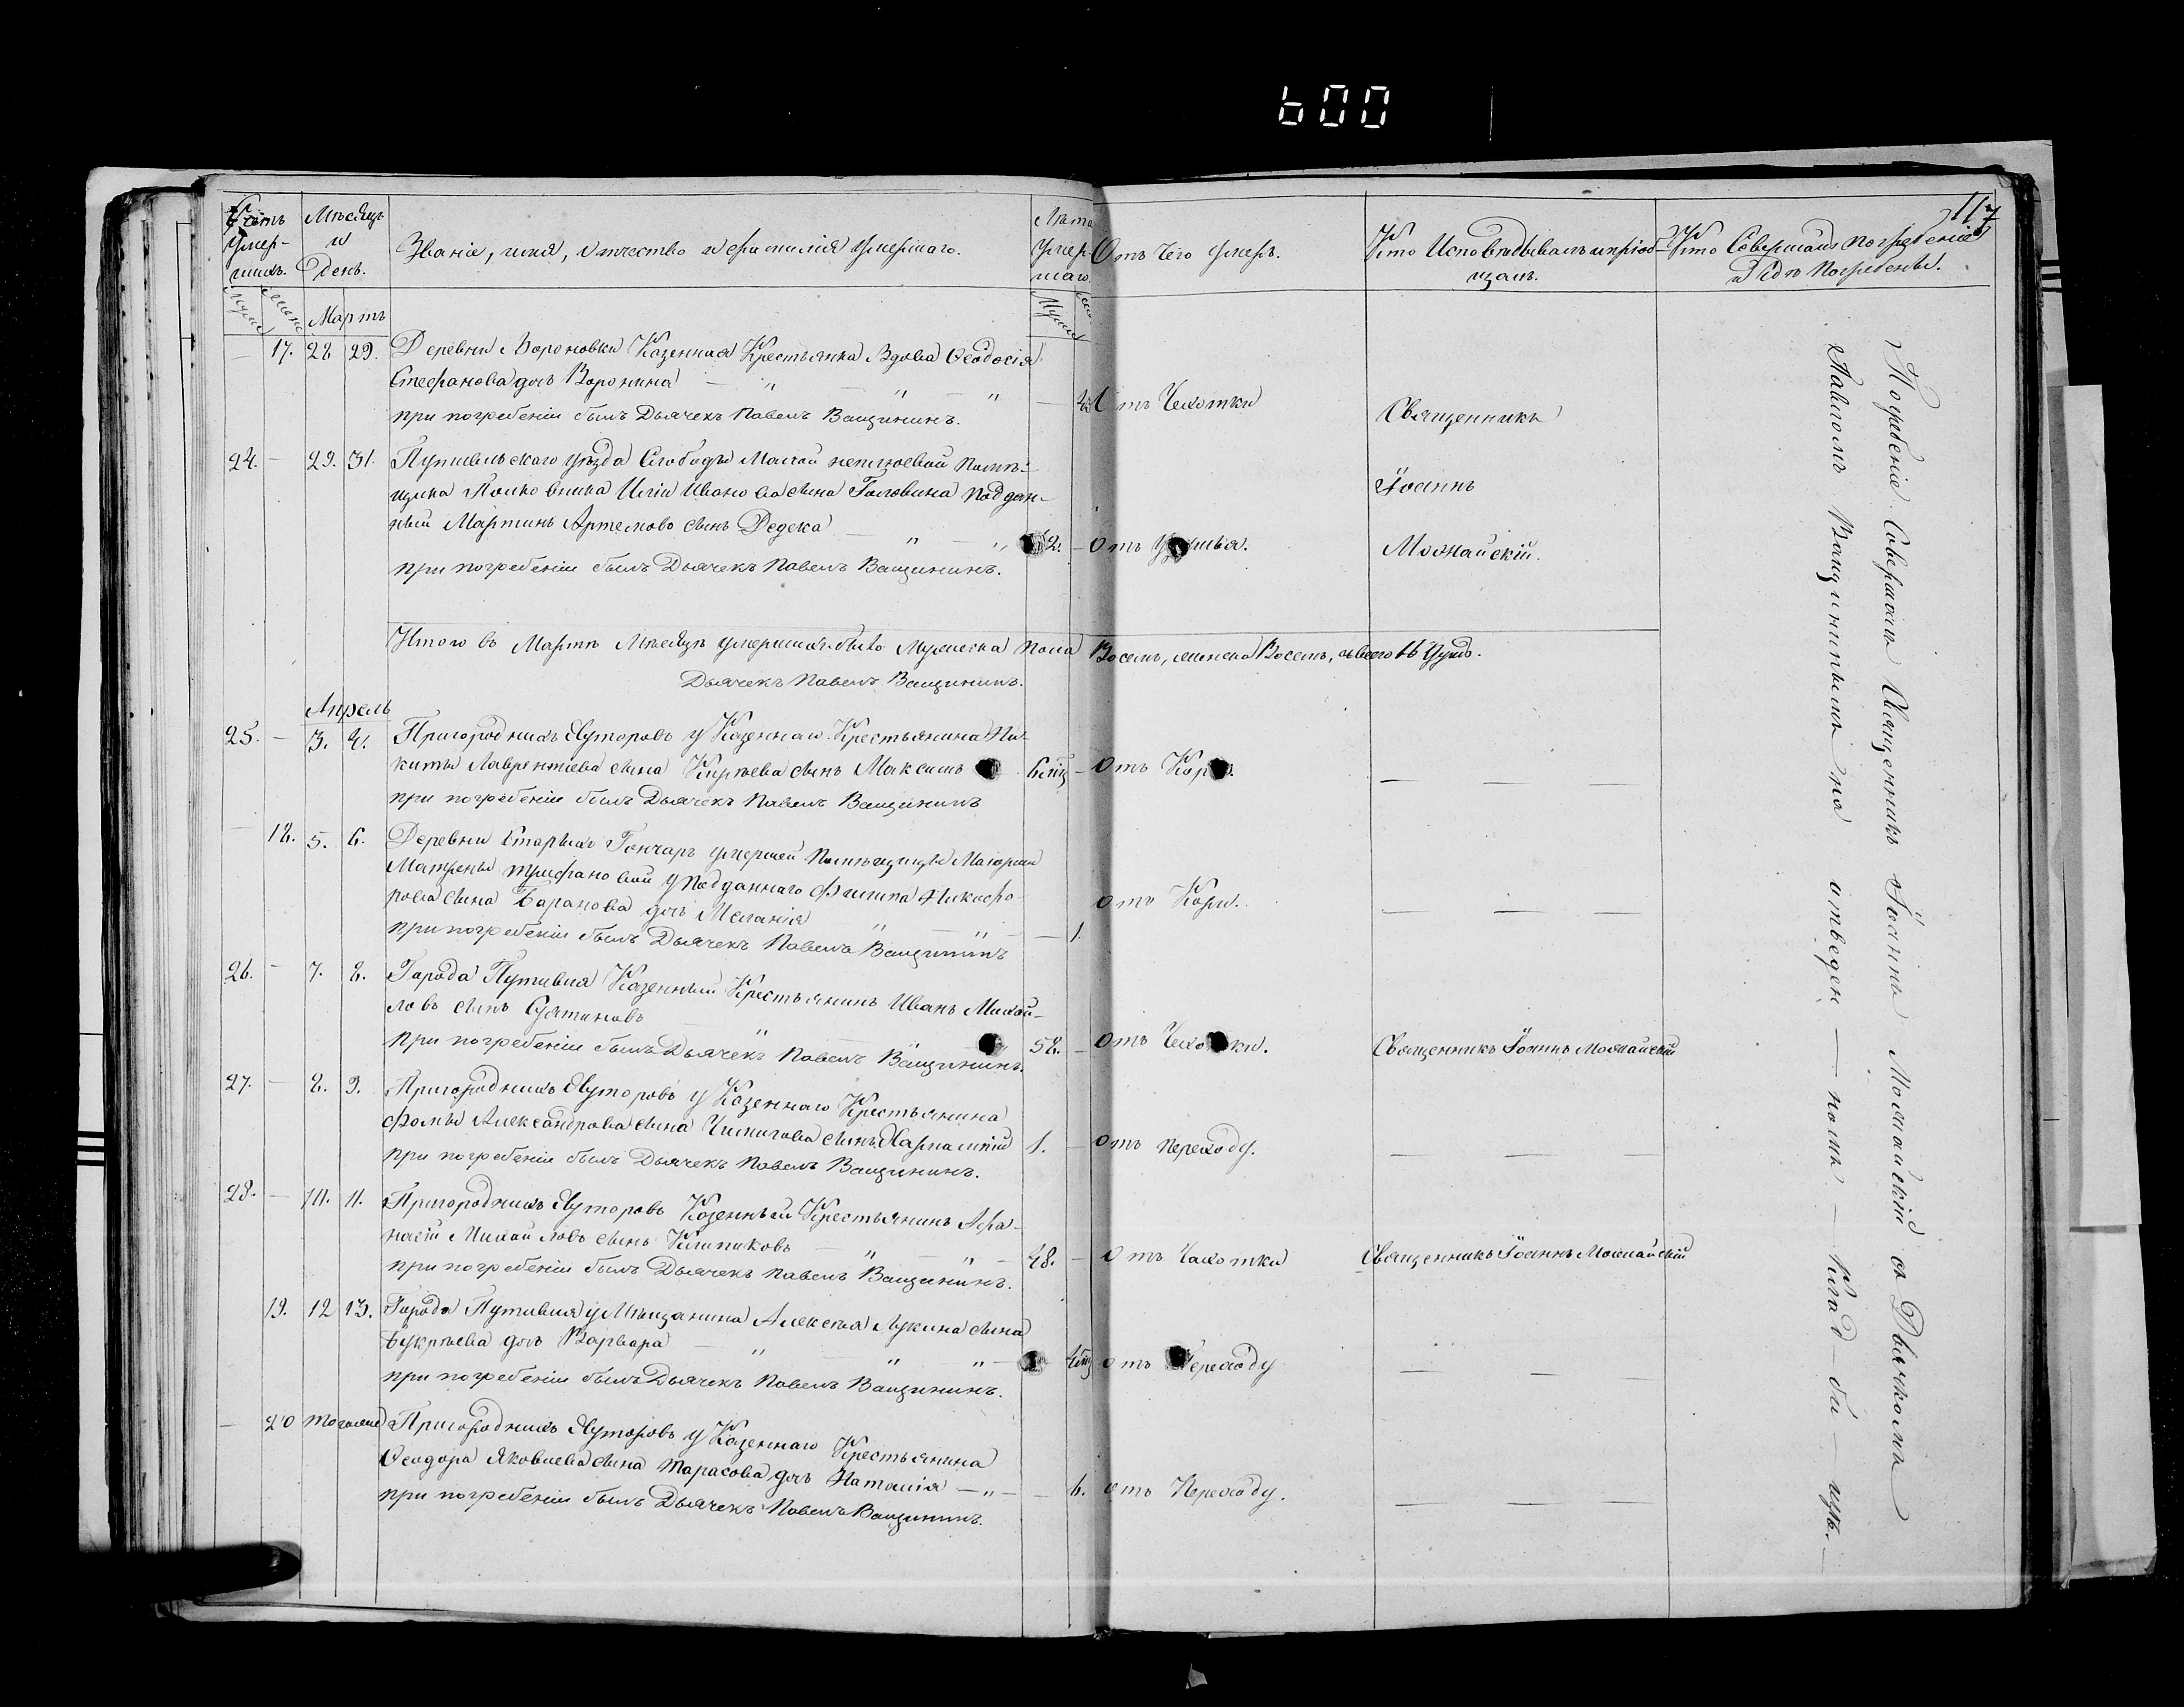 600
117
Счетъ умер-шихъ.
Мѣсяцъ и День.
Званіе, имя, отчество и фамилія умершаго.
Лѣта умер-шаго.
Отъ чего умеръ.
Кто Исповѣдывалъ и пріоб-щалъ.
Кто Совершалъ погребеніе и Гдѣ погребены.
Мартъ
17. 28 29. Деревни Вороновки Казенная Крестьянка Вдова Ѳеодосія
Стефанова дочь Воронина
Отъ Чахотки
при погребеніи былъ Дьячекъ Павелъ Ващининъ.
Священникъ
24. 29. 31. Путивльскаго уѣзда Слободы Малой Неплюевой Помѣ-
щика Полковника Иліи Иванова сына Головина поддан-
Іоаннъ
ный Мартинъ Артемовъ сынъ Редька
2. Отъ
Можайскій.
при погребеніи былъ Дьячекъ Павелъ Ващининъ.
Итого въ Мартѣ Мѣсяцѣ умершихъ было Мужеска пола Восемь, женска Восемь, а всего 16 душъ.
Дьячекъ Павелъ Ващининъ.
Апрель
25. 3. 4. Пригородныхъ Хуторовъ у Казеннаго Крестьянина Ни-
киты Лаврентіева сына Кирѣева сынъ Максимъ
Отъ Кори.
при погребеніи былъ Дьячекъ Павелъ Ващининъ
18. 5. 6. Деревни Старыхъ Гончаръ умершей Помѣщицы Маіорши
Матрены Трифановой у подданнаго Филипа Никифо-
рова сына Баранова дочь Меланія
1. отъ Кори.
при погребеніи былъ Дьячекъ Павелъ Ващининъ
26. 7. 8. Города Путивля Казенный Крестьянинъ Иванъ Михай-
ловъ сынъ
58. Отъ Чахотки. Священникъ Іоаннъ Можайскій
при погребеніи былъ Дьячекъ Павелъ Ващининъ.
27. 8. 9. Пригородныхъ Хуторовъ у Казеннаго Крестьянина
Фомы Александрова сына Чимигова сынъ Харлампій
1. Отъ переходу.
при погребеніи былъ Дьячекъ Павелъ Ващининъ.
28. 10. 11. Пригородныхъ Хуторовъ Казенный Крестьянинъ Афа-
насій Михайловъ сынъ Клипиковъ
48. Отъ Чахотки Священникъ Іоаннъ Можайскій
при погребеніи былъ Дьячекъ Павелъ Ващининъ.
19. 12 13. Города Путивля у Мѣщанина Алексѣя Лукина сына
Букрѣева дочь Варвара
отъ Переходу
при погребеніи былъ Дьячекъ Павелъ Ващининъ.
20 Тогоже Пригородныхъ Хуторовъ у Казеннаго Крестьянина
Ѳеодора Яковлева сына Тарасова дочь Наталія
6. отъ Переходу.
при погребеніи былъ Дьячекъ Павелъ Ващининъ.
Погребеніе Совершалъ Священникъ Іоаннъ Можайскій съ Дьячкомъ
Павломъ Ващининымъ на отведен — номъ — Клад — би — щѣ.